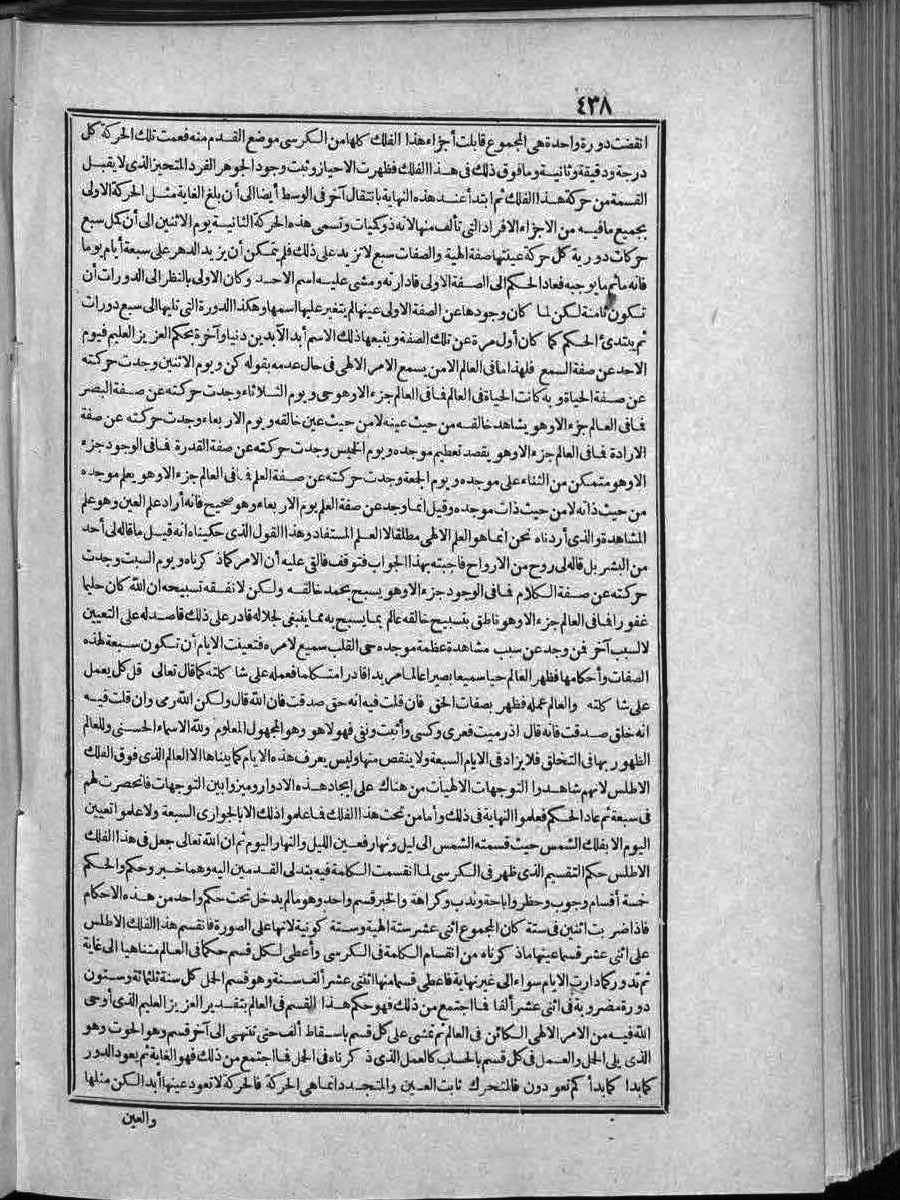 ٤٣٨
انقضت دورة واحدة هى المجموع قابلت أجزاء هذا الفلك كلها من الكرسى موضع القدم منه فعمت تلك الحركة كل
درجة ودقيقة وثانية وما فوق ذلك فى هذا الفلك فظهرت الاحياز وثبت وجود الجوهر الفرد المتحيز الذى لا يقبل
القسمة من حركة هذا الفلك ثم ابتدأ عند هذه النهاية بانتقال آخر فى الوسط أيضا الى أن بلغ الغاية مثل الحركة الاولى
بجميع ما فيه من الاجزاء الافراد التى تألف منها لانه ذو كميات وتسمى هذه الحركة الثانية يوم الاثنين الى أن كمل سبع
حركات دورية كل حركة عينتها صفة الهية والصفات سبع لا تزيد على ذلك فلم يتمكن أن يزيد الدهر على سبعة أيام يوما
فانه ما ثم ما يوجبه فعاد الحكم الى الصفة الاولى فادارته ومشى عليه اسم الاحد وكان الاولى بالنظر الى الدورات أن
تكون ثامنة لكن لما كان وجودها عن الصفة الاولى عينها لم يتغير عليها اسمها وهكذا الدورة التى تليها الى سبع دورات
ثم يبتدئ الحكم كما كان أول مرة عن تلك الصفة ويتبعها ذلك الاسم أبد الآبدين دنيا وآخرة بحكم العزيز العليم فيوم
الاحد عن صفة السمع فلهذا ما فى العالم الا من يسمع الامر الالهى فى حال عدمه بقوله كن ويوم الاثنين وجدت حركته
عن صفة الحياة وبه كانت الحياة فى العالم فما فى العالم جزء الا وهو حى ويوم الثلاثاء وجدت حركته عن صفة البصر
فما فى العالم جزء الا وهو يشاهد خالقه من حيث عينه لا من حيث عين خالقه ويوم الاربعاء وجدت حركته عن صفة
الارادة فما فى العالم جزء الا وهو يقصد تعظيم موجده ويوم الخميس وجدت حركته عن صفة القدرة فما فى الوجود جزء
الا وهو متمكن من الثناء على موجده ويوم الجمعة وجدت حركته عن صفة العلم فما فى العالم جزء الا وهو يعلم موجده
من حيث ذاته لا من حيث ذات موجده وقيل انما وجد عن صفة العلم يوم الاربعاء وهو صحيح فانه أراد علم العين وهو علم
المشاهدة والذى أردناه نحن انما هو العلم الالهى مطلقا لا العلم المستفاد وهذا القول الذى حكيناه انه قيل ما قاله لى أحد
من البشر بل قاله لى روح من الارواح فاجبته بهذا الجواب فتوقف فالقى عليه أن الامر كما ذكرناه ويوم السبت وجدت
حركته عن صفة الكلام فما فى الوجود جزء الا وهو يسبح بحمد خالقه ولكن لا نفقه تسبيحه ان الله كان حليما
غفورا فما فى العالم جزء الا وهو ناطق بتسبيح خالقه عالم بما يسبح به مما ينبغى لجلاله قادر على ذلك قاصد له على التعيين
لا لسبب آخر فمن وجد عن سبب مشاهدة عظمة موجده حى القلب سميع لامره فتعينت الايام أن تكون سبعة لهذه
الصفات وأحكامها فظهر العالم حيا سميعا بصيرا عالما مريدا قادرا متكلما فعمله على شاكلته كما قال تعالى قل كل يعمل
على شاكلته والعالم عمله فظهر بصفات الحق فان قلت فيه انه حق صدقت فان الله قال ولكن الله رمى وان قلت فيه
انه خلق صدقت فانه قال اذ رميت فعرى وكسى وأثبت ونفى فهو لا هو وهو المجهول المعلوم ولله الاسماء الحسنى وللعالم
الظهور بها فى التخلق فلا يزاد فى الايام السبعة ولا ينقص منها وليس يعرف هذه الايام كما بيناها الا العالم الذى فوق الفلك
الاطلس لانهم شاهدوا التوجهات الالهيات من هناك على ايجاد هذه الادوار وميزوا بين التوجهات فانحصرت لهم
فى سبعة ثم عاد الحكم فعلموا النهاية فى ذلك وأما من تحت هذا الفلك فما علموا ذلك الا بالجوارى السبعة ولا علموا تعيين
اليوم الا بفلك الشمس حيث قسمته الشمس الى ليل ونهار فعين الليل والنهار اليوم ثم ان الله تعالى جعل فى هذا الفلك
الاطلس حكم التقسيم الذى ظهر فى الكرسى لما انقسمت الكلمة فيه بتدلى القدمين اليه وهما خبر وحكم والحكم
خمسة أقسام وجوب وحظر واباحة وندب وكراهة والخبر قسم واحد وهو ما لم يدخل تحت حكم واحد من هذه الاحكام
فاذا ضربت اثنين فى ستة كان المجموع اثنى عشر ستة الهية وستة كونية لانها على الصورة فانقسم هذا الفلك الاطلس
على اثنى عشر قسما عينها ما ذكرناه من انقسام الكلمة فى الكرسى وأعطى لكل قسم حكما فى العالم متناهيا الى غاية
ثم تدور كما دارت الايام سواء الى غير نهاية فاعطى قسما منها اثنتى عشر ألف سنة وهو قسم الحمل كل سنة ثلثمائة وستون
دورة مضروبة فى اثنى عشر ألفا فما اجتمع من ذلك فهو حكم هذا القسم فى العالم بتقدير العزيز العليم الذى أوحى
الله فيه من الامر الالهى الكائن فى العالم ثم تمشى على كل قسم باسقاط ألف حتى تنتهى الى آخر قسم وهو الحوت وهو
الذى يلى الحمل والعمل فى كل قسم بالحساب كالعمل الذى ذكرناه فى الحمل فما اجتمع من ذلك فهو الغاية ثم يعود الدور
كما بدا كما بدأكم تعودون فالمتحرك ثابت العين والمتجدد انما هى الحركة فالحركة لا تعود عينها أبدا لكن مثلها
والعين